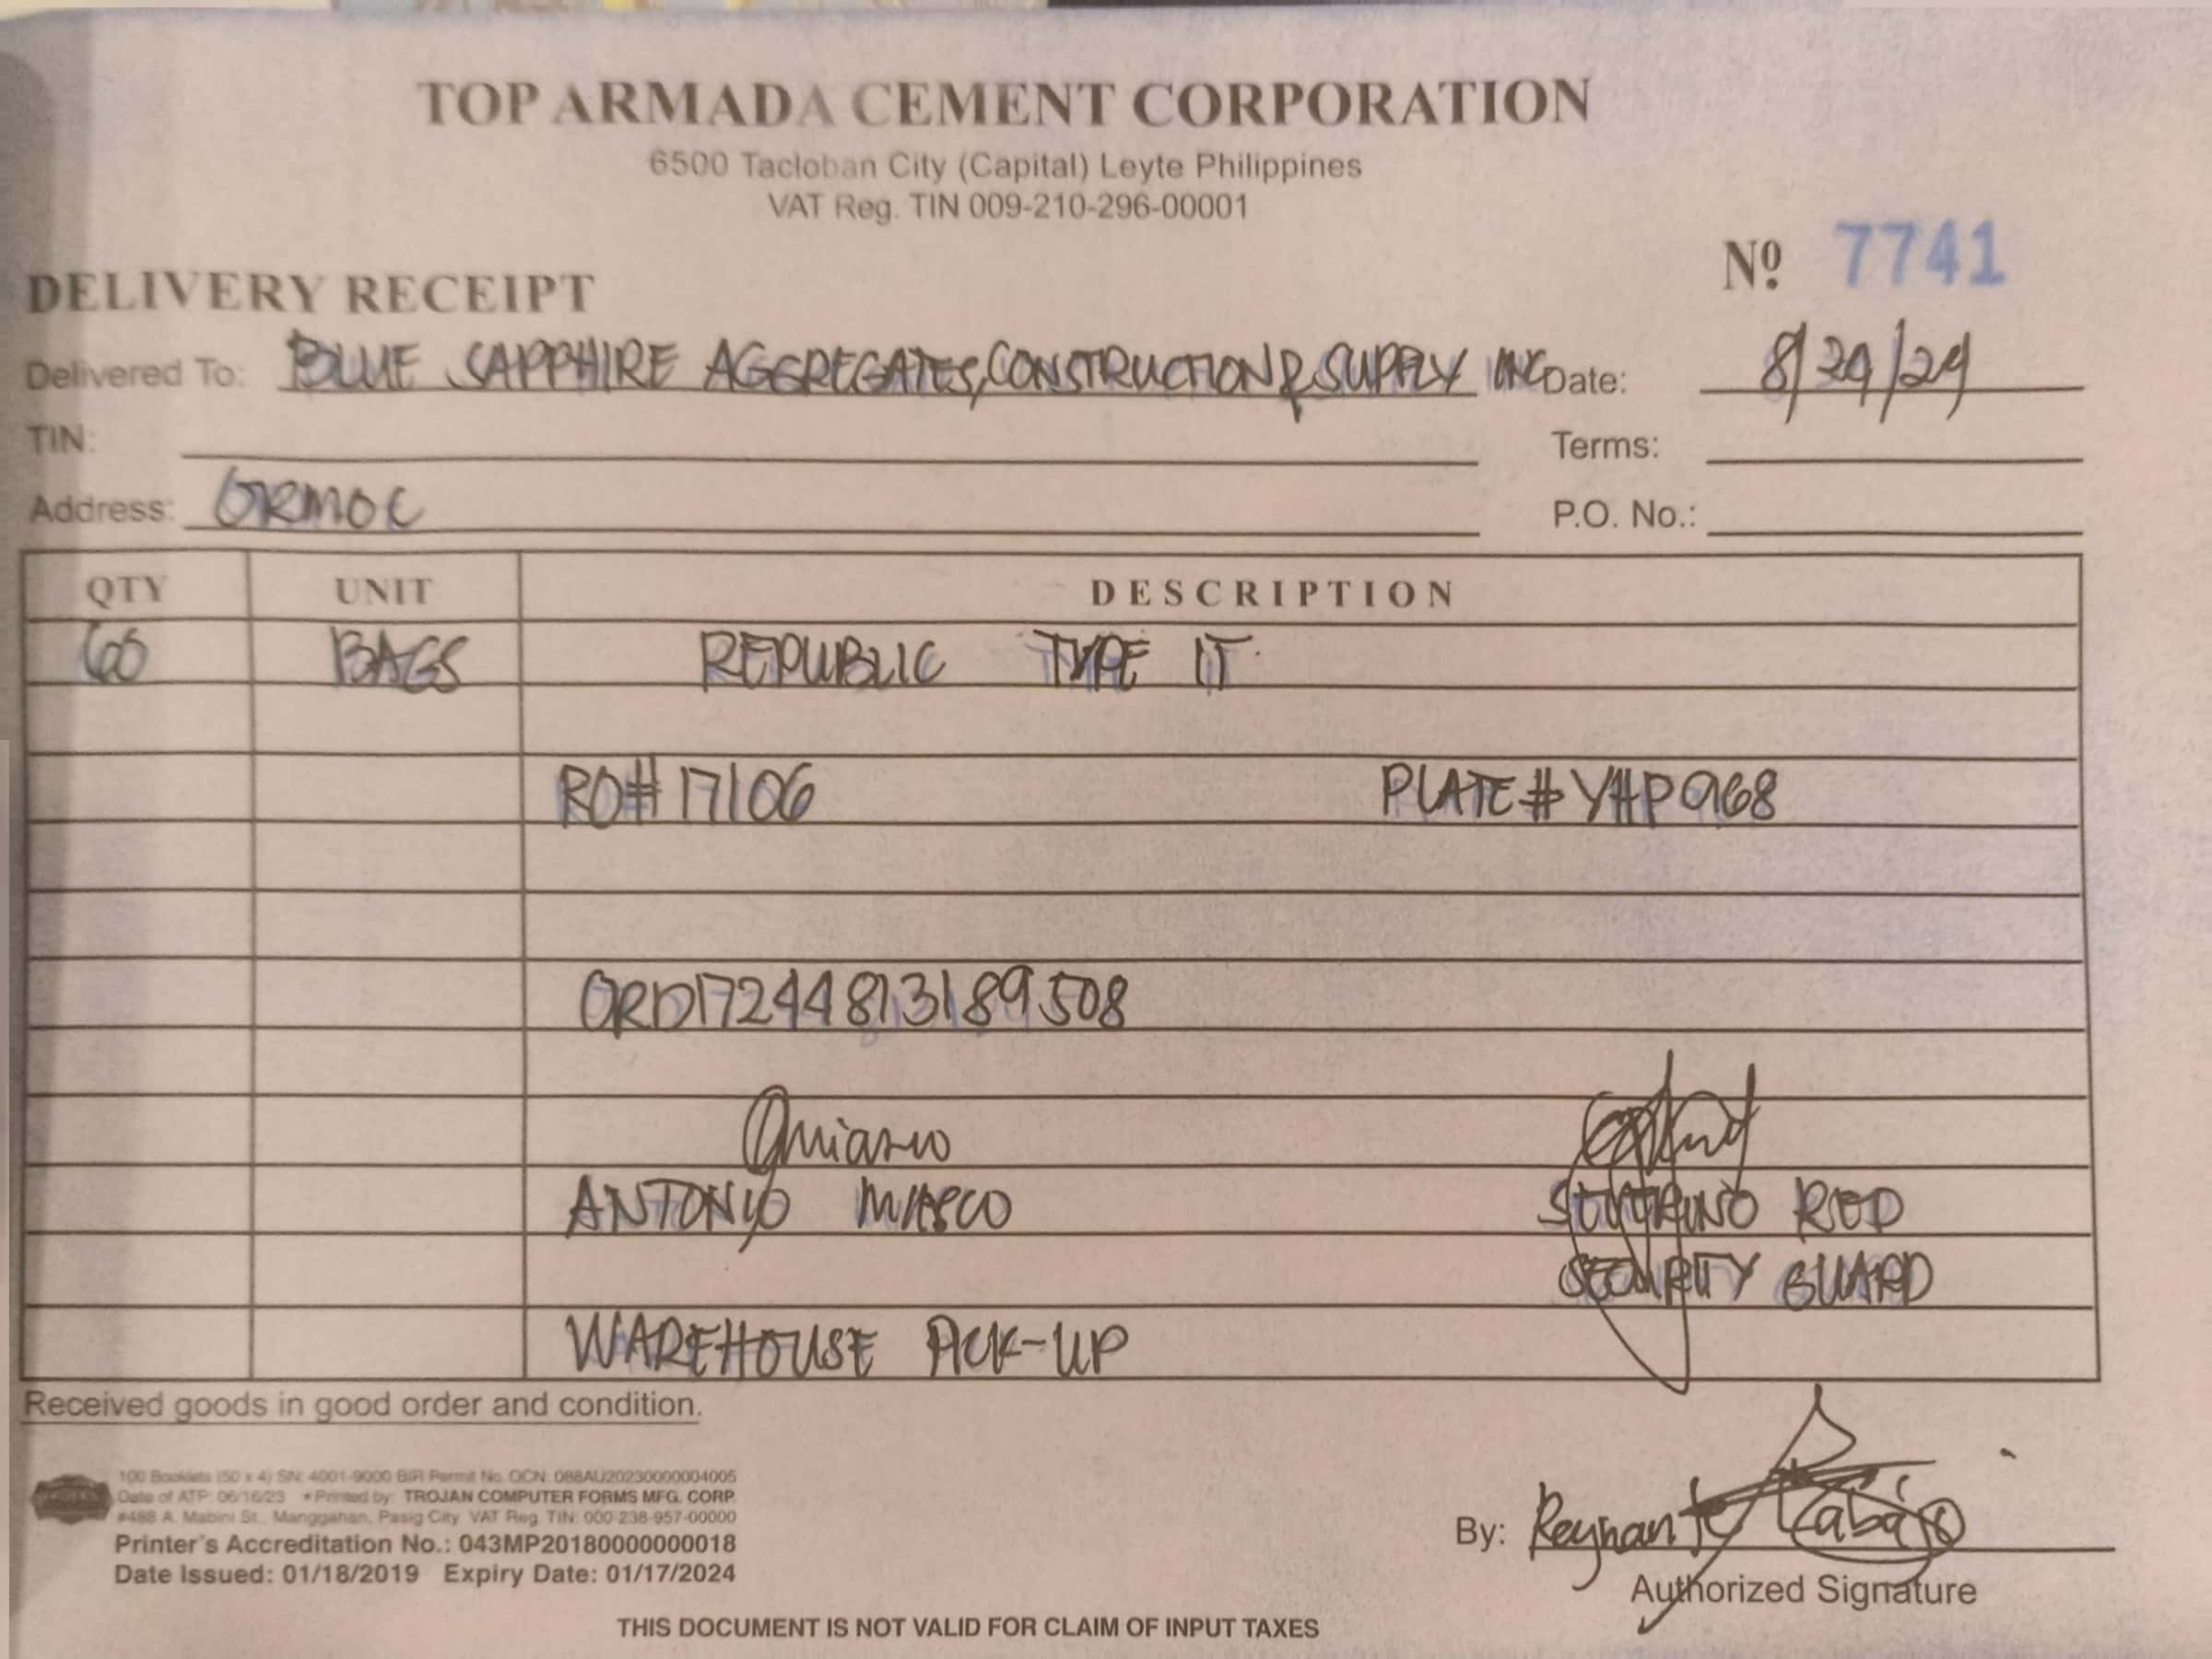 TOP ARMADA CEMENT CORPORATION
6500 Tacloban City (Capital) Leyte Philippines
VAT Reg. TIN 009-210-296-00001
Nº 7741
DELIVERY RECEIPT
Delivered To: BLUE SAPPHIRE AGGREGATES, CONSTRUCTION & SUPPLY INC Date: 8/29/24
TIN: Terms:
Address: ORMOC P.O. No.:
QTY UNIT DESCRIPTION
60 BAGS REPUBLIC TYPE 1T
RO# 17106 PLATE# YHP968
ORD1724481318 9508
ANTONIO MIASCO SEVERINO ROD
SECURITY GUARD
WAREHOUSE PICK-UP
Received goods in good order and condition.
100 Booklets (50 x 4) SN: 4001-9000 BIR Permit No. OCN: 088AU20230000004005
Date of ATP: 06/16/23 • Printed by: TROJAN COMPUTER FORMS MFG. CORP.
#488 A. Mabini St., Manggahan, Pasig City VAT Reg. TIN: 000-238-957-00000
Printer's Accreditation No.: 043MP20180000000018
Date Issued: 01/18/2019 Expiry Date: 01/17/2024
By: Reynante
Authorized Signature
THIS DOCUMENT IS NOT VALID FOR CLAIM OF INPUT TAXES